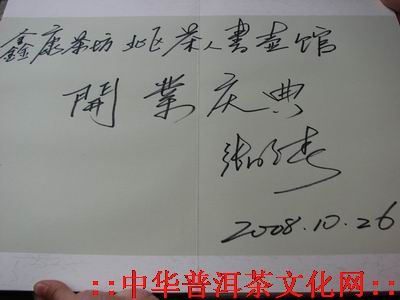 鑫康茶坊 北区茶人書画馆
開業庆典
2008.10.26
::中华普洱茶文化网::